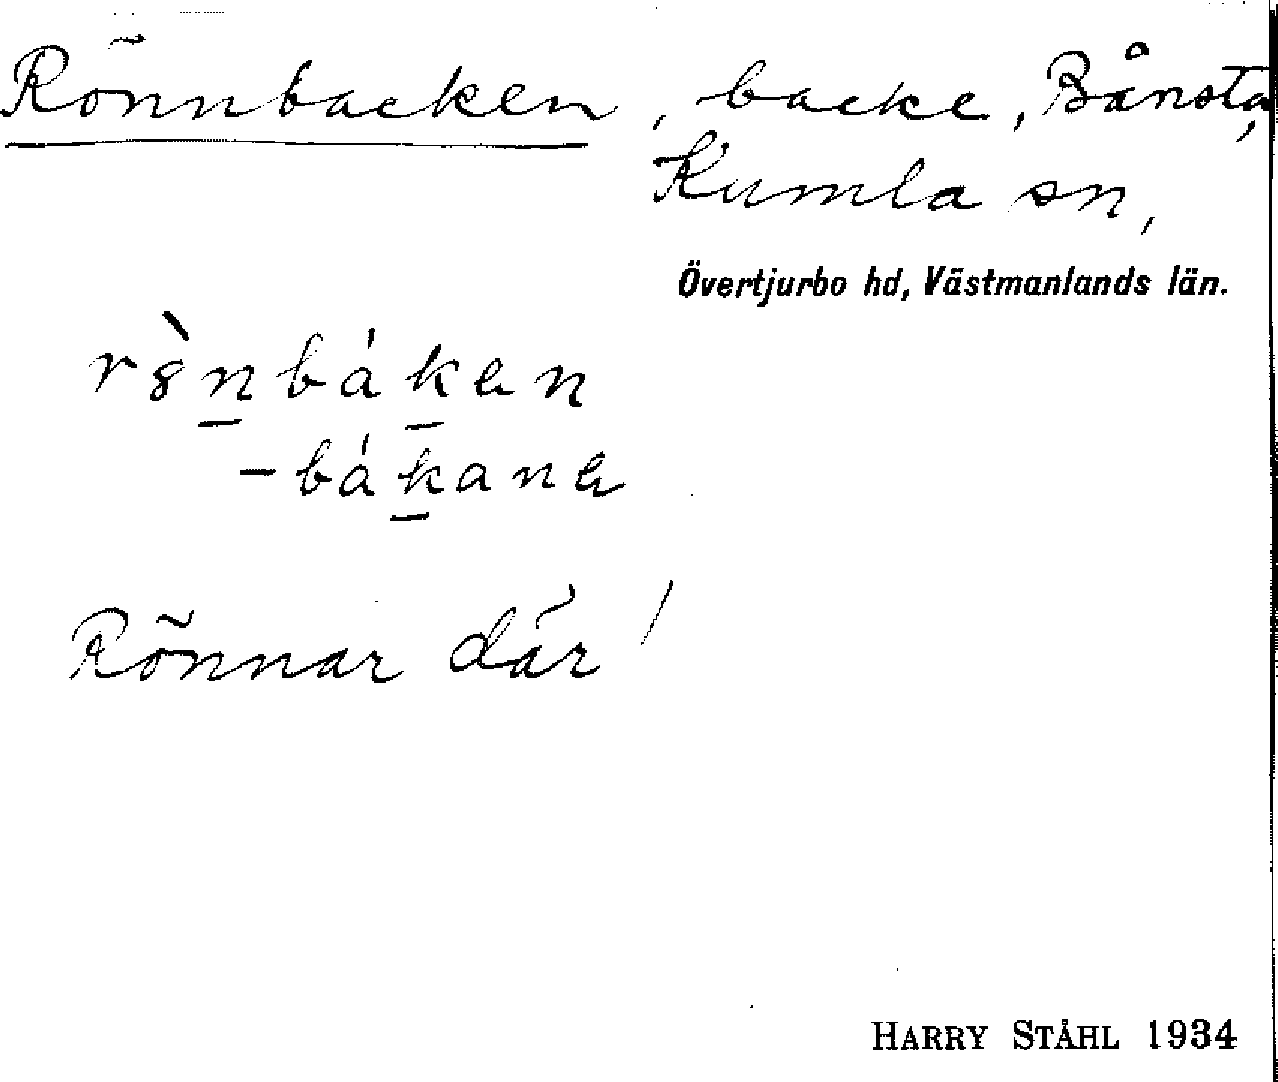 Rönnbacken, backe, Bånsta,
Kumla sn,
Övertjurbo hd, Västmanlands län.
r8̀n̲bák̲en
-bák̲ana
Rönnar där!
HARRY STÅHL 1934